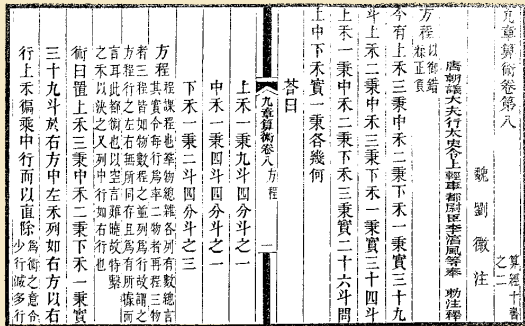 九章算術卷第八
算經十書之二
魏劉徽注
唐朝議大夫行太史令上輕車都尉臣李淳風等奉 勅注釋
方程以御錯糅正負
今有上禾三秉中禾二秉下禾一秉實三十九
斗上禾二秉中禾三秉下禾一秉實三十四斗
上禾一秉中禾二秉下禾三秉實二十六斗問
上中下禾實一秉各幾何
荅曰
九章算術卷八 方程 一
上禾一秉九斗四分斗之一
中禾一秉四斗四分斗之一
下禾一秉二斗四分斗之三
方程程課程也羣物總雜各列有數總言
其實令每行為率二物者再程三物
者三程皆如物數程之並列為行故謂之
方程行之左右無所同存且為有所據而
言耳此都術也以空言難曉故特繫
之禾以決之又列中行如右行也
術曰置上禾三秉中禾二秉下禾一秉實
三十九斗於右方中左禾列如右方以右
行上禾徧乘中行而以直除為術之意令
少行減多行